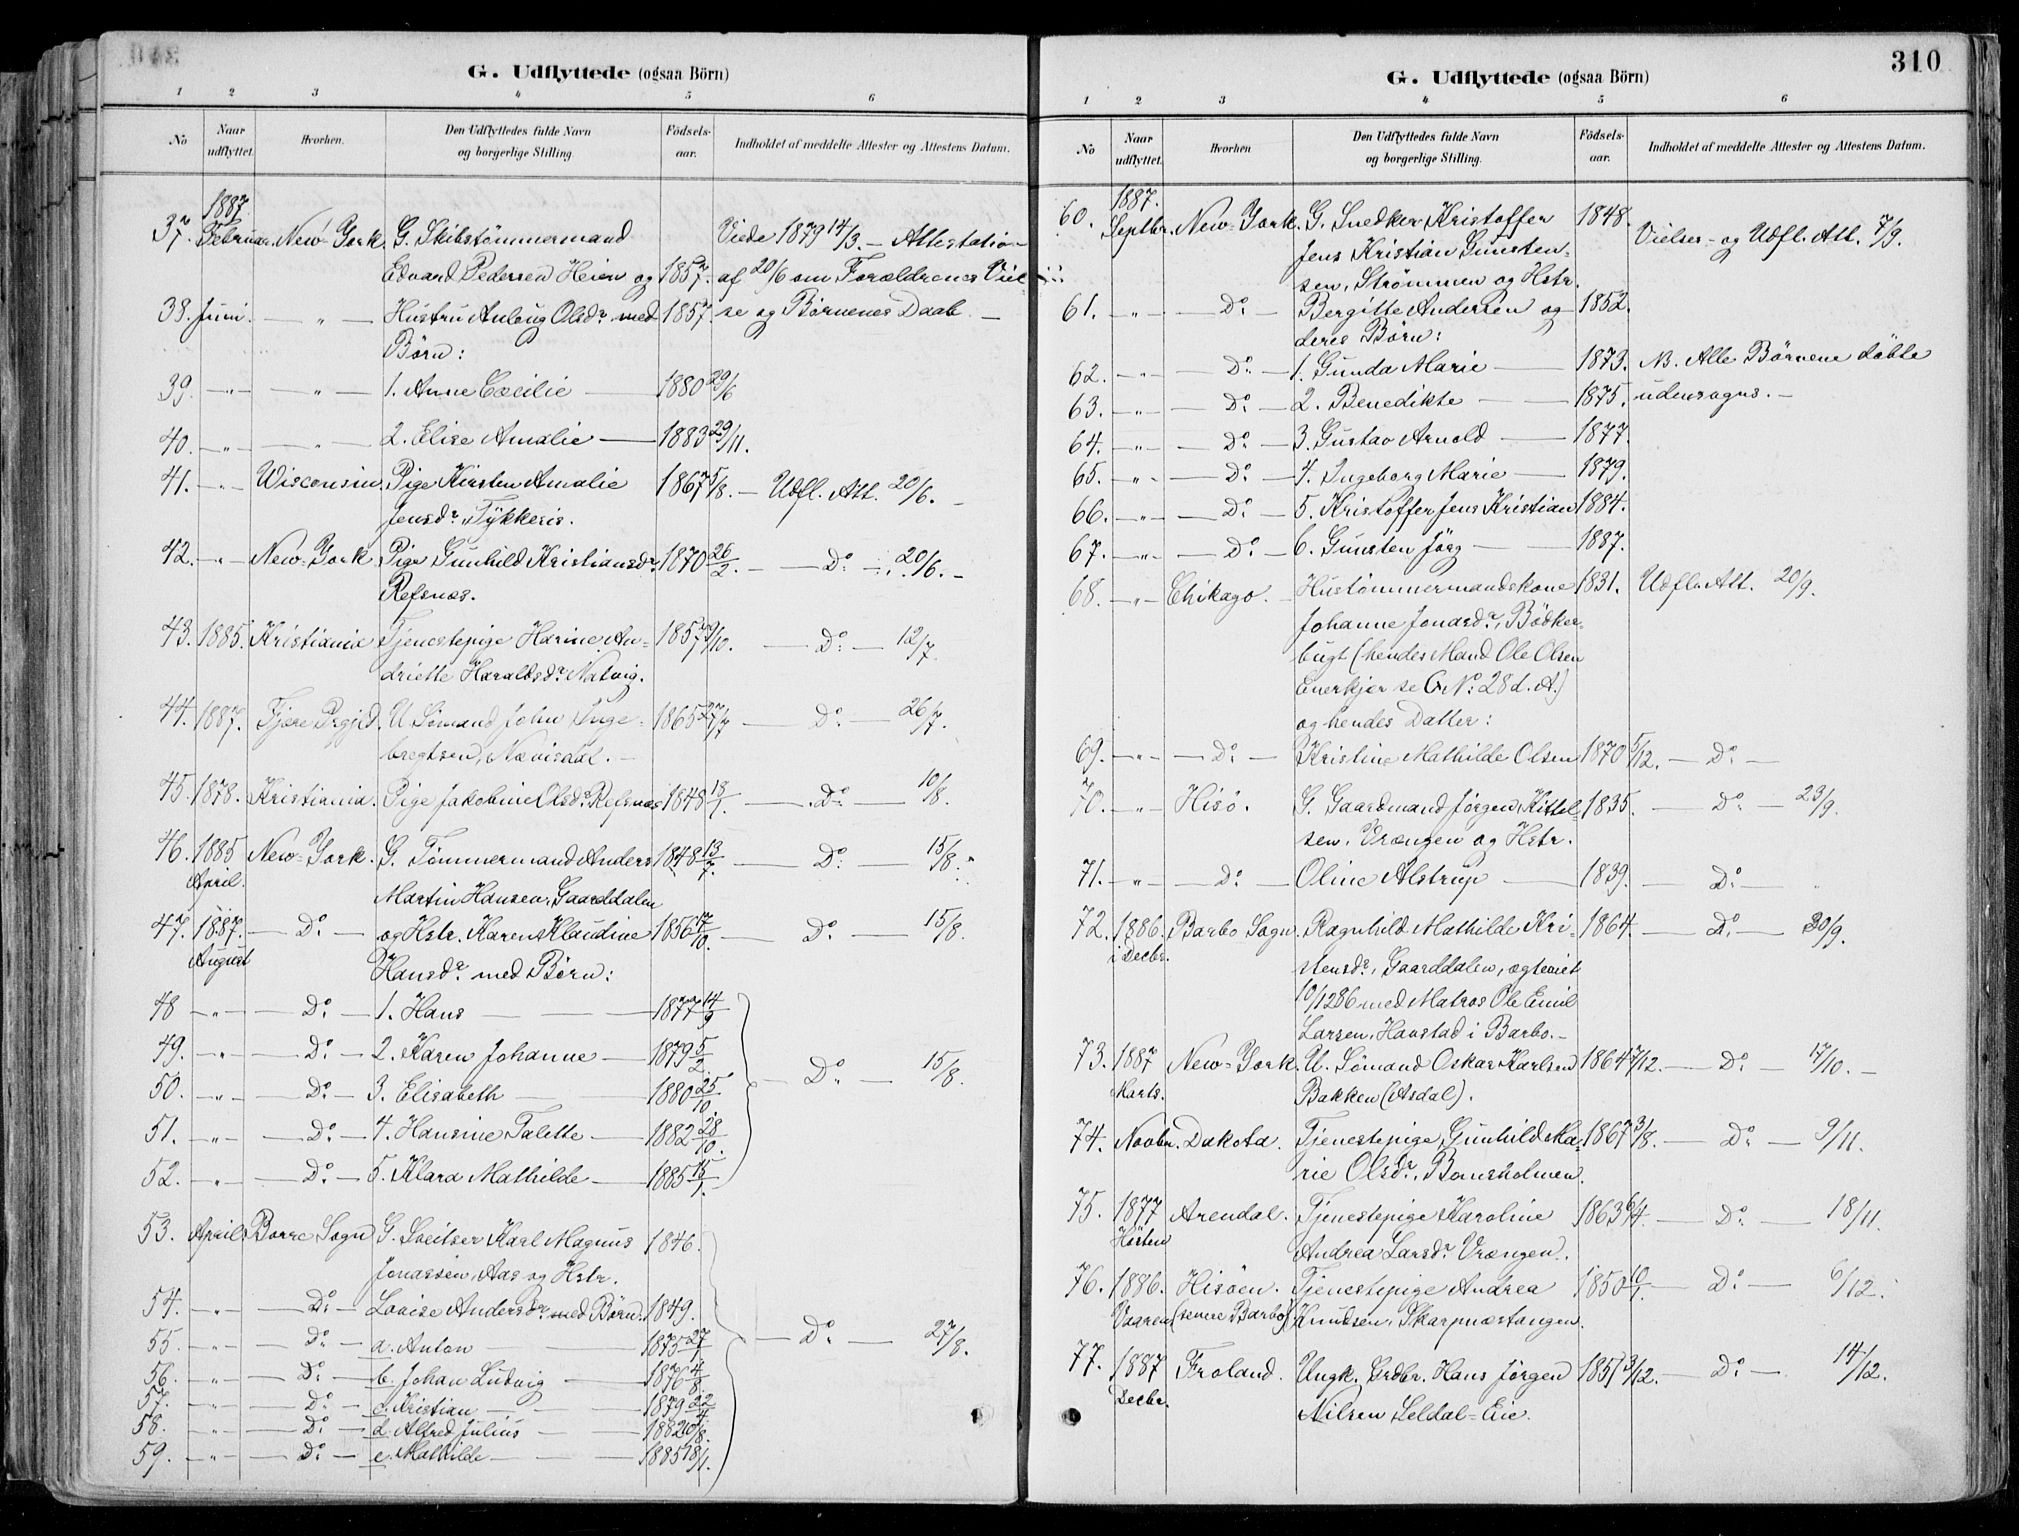 G. Udflyttede (ogsaa Börn)
1 2 3 4 5 6
No Naar udflyttet. Hvorhen. Den Udflyttedes fulde Navn og borgerlige Stilling. Födsels-aar. Indholdet af meddelte Attester og Attestens Datum.
1887
37. Februar New York. G. Skibstömmermand Viede 1879 14/3. – Attestation
Edvard Pedersen Heien og 1857. af 20/6 om Forældrenes Viel-
38. Juni. — " — Hustru Anlaug Olsdr. med 1857. se og Børnenes Daab. —
Børn:
39. — " — — " — 1. Anne Cecilie — 1880 29/6
40. — " — — " — 2. Elise Amalie — 1883 29/11.
41. — " — Wisconsin. Pige Kirsten Amalie 1867 5/8. — Udfl. Att. 20/6. —
Jensdr. Tykkeris.
42. — " New-York. Pige Gunhild Kristiansdr. 1870 26/2. — Do. — 20/6. —
Refsnæs.
43. 1885. Kristiania Tjenestepige Harine An- 1857 29/10. — Do. — 12/7.
driette Haraldsdr. Natvig.
44. 1887. Fjære Prgjd. U. Sømand John Inge- 1865 27/7 — Do. — 26/7.
bregtsen, Nævisdal. —
45. 1878. Kristiania. Pige Jakobine Olsdr. Refsnæs 1848 18/1. — Do. — 10/8.
46. 1885 New-York. G. Tømmermand Anders 1848 13/7. — Do. — 15/8.
April. Martin Hansen, Gaarddalen
47. 1887. — Do. — og Hstr. Karen Klaudine 1856 17/10. — Do. — 15/8.
August Hansdr. med Børn:
48 — " — — Do. — 1. Hans — 1877 14/9
49. — " — — Do. — 2. Karen Johanne — 1879 5/2. — Do. — 15/8.
50. — " — — Do. — 3. Elisabeth — 1880 25/10.
51. — " — — Do. — 4. Hansine Talette — 1882 28/10.
52. — " — — Do. — 5. Klara Mathilde — 1885 15/1.
53. April Borre Sogn G. Sveitser Karl Magnus 1846.
Jonassen, Aas og Hstr.
54. — " — — Do. — Lovise Andersdr. med Børn. 1849.
55. — " — — Do. — a. Anton — 1875 27/1 — Do. — 27/8.
56. — " — — Do. — b. Johan Ludvig — 1876 4/8
57. — " — — Do. — c. Kristian — 1879 22/4
58. — " — — Do. — d. Alfred Julius — 1882 10/8.
59. — " — — Do. — e. Mathilde — 1885 18/1.
310
G. Udflyttede (ogsaa Börn)
1 2 3 4 5 6
No Naar udflyttet. Hvorhen. Den Udflyttedes fulde Navn og borgerlige Stilling. Födsels-aar. Indholdet af meddelte Attester og Attestens Datum.
1887.
60. Septbr. New-York. G. Snedker Kristoffer 1848. Vielses- og Udfl. Att. 7/9.
Jens Kristian Gunsten-
sen, Strømmen og Hstr.
61. — " — — Do. — Bergitte Andersen og 1852.
deres Børn:
62. — " — — Do. — 1. Gunda Marie — 1873. NB. Alle Børnene døbte
63. — " — — Do. — 2. Benedikte — 1875. udensogns. —
64. — " — — Do. — 3. Gustav Arnold — 1877.
65. — " — — Do. — 4. Ingeborg Marie — 1879.
66. — " — — Do. — 5. Kristoffer Jens Kristian 1884.
67. — " — — Do. — 6. Gunsten Jørg — 1887.
68. — " — Chikago. Hustømmermandskone 1831. Udfl. Att. 20/9.
Johanne Jonasdr., Bødker-
bugt (hendes Mand Ole Olsen
Enerkjær se G No: 28 d. A.)
og hendes Datter:
69. — " — — Do. — Kristine Mathilde Olsen 1870 5/12. — Do. —
70. — " — Hisö. G. Gaardmand Jørgen Kittel- 1835. — Do. — 23/9.
sen, Vrængen og Hstr.
71. — " — — Do. — Oline Alstrup — 1839. — Do. — "
72. 1886. Barbo Sogn. Ragnhild Mathilde Kri- 1864. — Do. — 30/9.
i Decbr. stensdr., Gaarddalen, ægteviet
10/12 86 med Matros Ole Emil
Larsen, Havstad i Barbo. —
73. 1887 New-York. U. Sømand Oskar Karlsen 1864 7/12. — Do. — 17/10. —
Marts. Bakken (Asdal).
74. Novbr. Dakota. Tjenestepige Gunhild Ma- 1867 3/8. — Do. — 9/11.
rie Olsdr., Bomsholmen.
75. 1877 Arendal. Tjenestepige Karoline 1863 6/4. — Do. — 18/11.
Høsten Andrea Larsdr. Vrængen.
76. 1886. Hisöen. Tjenestepige Andrea 1850 10/1. — Do. — 6/12.
Vaaren (senere Barbo) Knudsen, Skarpnæstangen.
77. 1887 Froland. Ungk. Grdbr. Hans Jørgen 1851 3/12. — Do. — 14/12.
Decbr. Nilsen Seldal-Eie.